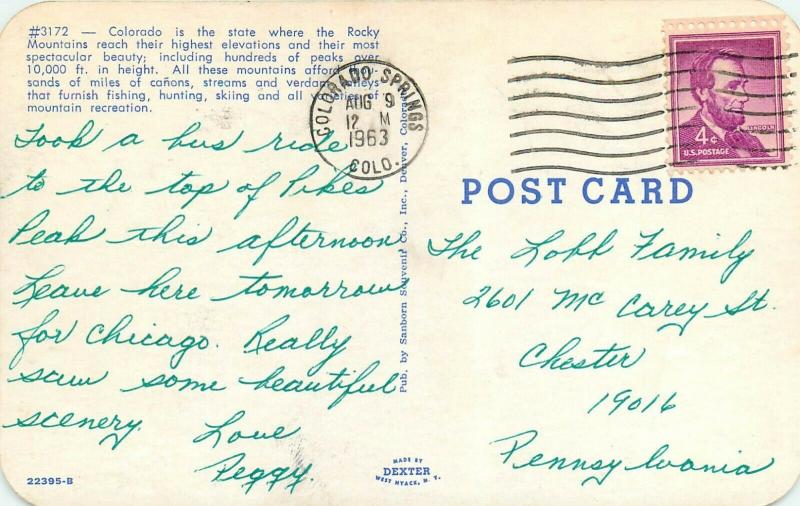 #3172 — Colorado is the state where the Rocky
Mountains reach their highest elevations and their most
spectacular beauty; including hundreds of peaks over
10,000 ft. in height. All these mountains afford thou-
sands of miles of cañons, streams and verdant valleys
that furnish fishing, hunting, skiing and all varieties of
mountain recreation.
Took a bus ride
to the top of Pikes
Peak this afternoon
Leave here tomorrow
for Chicago. Really
saw some beautiful
scenery.
Love
Peggy.
22395-B
COLORADO SPRINGS
AUG 9
12 M
1963
COLO.
Pub. by Sanborn Souvenir Co., Inc., Denver, Colorado
MADE BY
DEXTER
WEST NYACK, N. Y.
LINCOLN
4¢
U.S. POSTAGE
POST CARD
The Lobb Family
2601 McCarey St.
Chester
19016
Pennsylvania